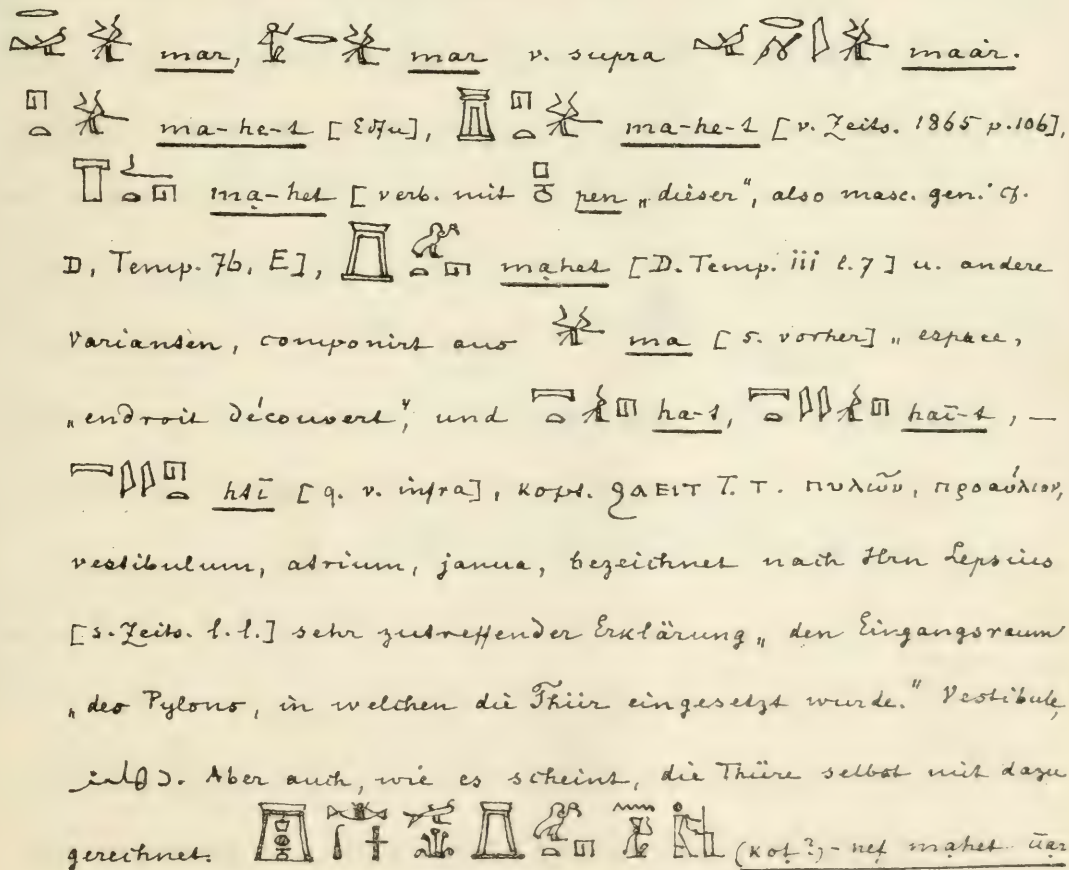 mar, mar v. supra maàr.
ma-he-t [Edfu], ma-he-t [v. Zeits. 1865 p. 106],
mạ-het [verb. mit pen „dieser", also masc. gen.' cf.
D, Temp. 7b, E], mạhet [D. Temp. iii l. 7] u. andere
Varianten, componirt aus ma [s. vorher] „espace,
„endroit découvert", und ha-t, haī-t, —
htī [q. v. infra], kopt. ϩⲁⲉⲓⲧ T. T. πυλιῶν, προαύλιον,
vestibulum, atrium, janua, bezeichnet nach Hrn Lepsius
[s. Zeits. l. l.] sehr zutreffender Erklärung „den Eingangsraum
„des Pylons, in welchen die Thür eingesetzt wurde." Vestibule,
Aber auch, wie es scheint, die Thüre selbst mit dazu
gerechnet. (Kot?)-nef mạhet ūạr